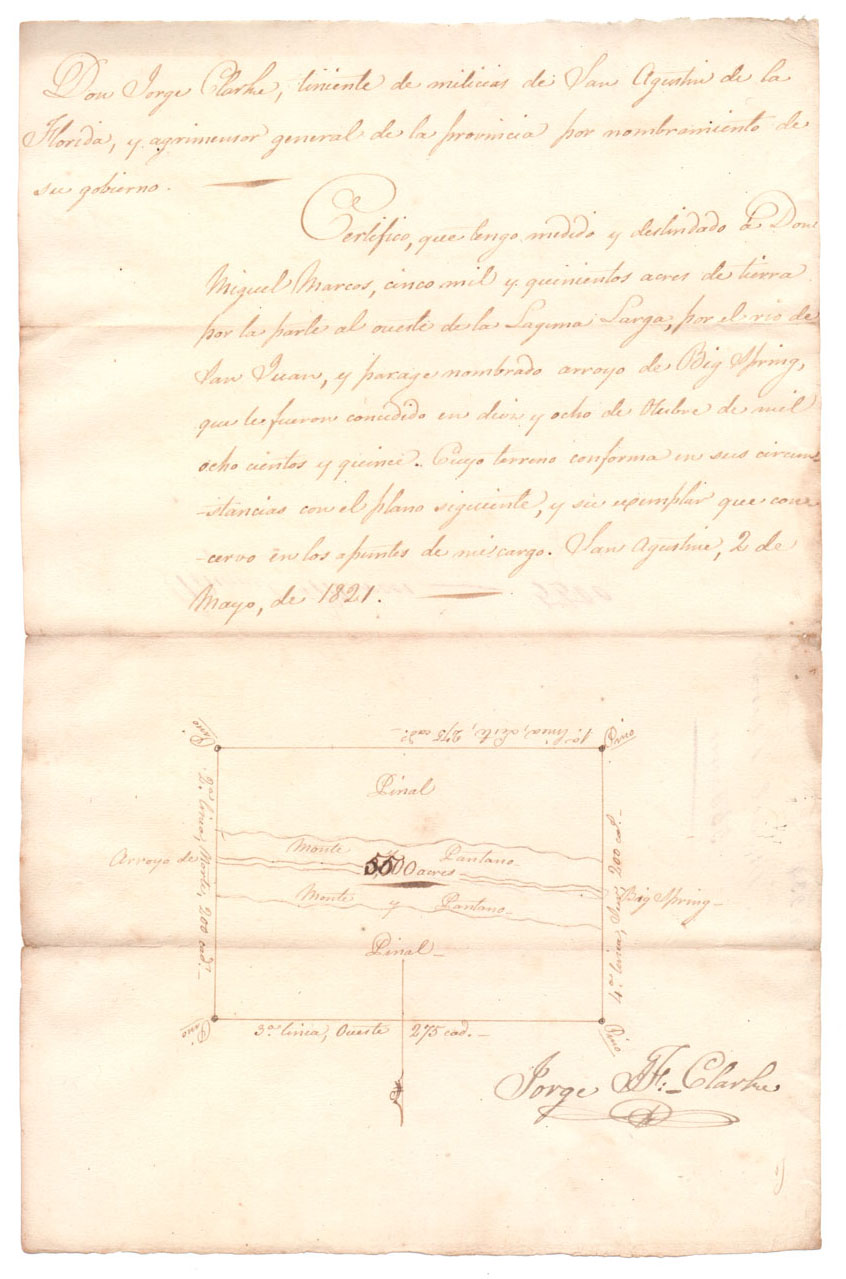 Don Jorge Clarke, teniente de milicias de San Agustin de la
Florida, y agrimensor general de la provincia por nombramiento de
su gobierno.
Certifico, que tengo medido y deslindado á Don
Miguel Marcos, cinco mil y quinientos acres de tierra
por la parte al oueste de la Laguna Larga, por el rio de
San Juan, y parage nombrado arroyo de Big Spring,
que le fueron concedido en diez y ocho de Otubre de mil
ocho cientos y quince. Cuyo terreno conforma en sus circun-
-stancias con el plano siguiente, y su exemplar que con-
-cervo en los apuntes de mi cargo. San Agustine, 2 de
Mayo, de 1821.
Pino
1a. linea, Este, 275 cad.
Pino
Pinal
2a. linea, Norte, 200 cad.
Monte y Pantano
Arroyo de
5500 acres
Big Spring
Monte y Pantano
4a. linea, Sur, 200 cad.
Pinal
Pino
3a. linea, Oueste 275 cad.
Pino
Jorge J. F. Clarke